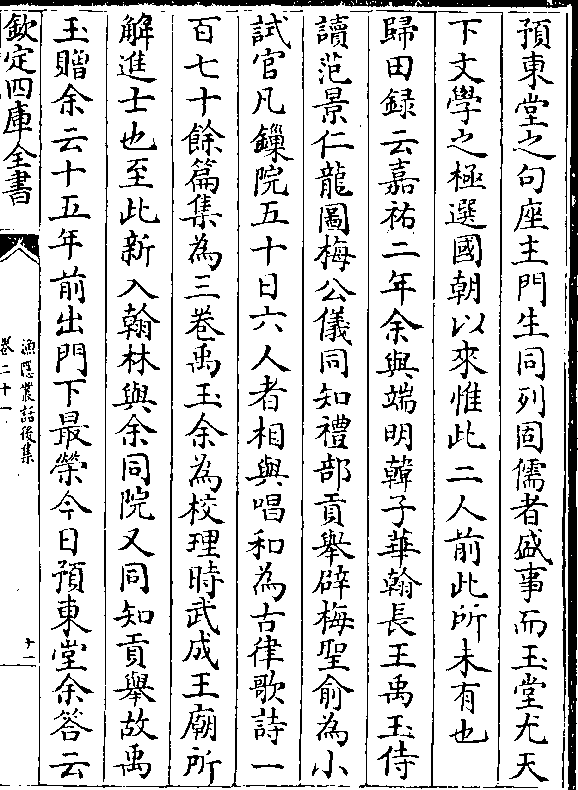 預東堂之句座主門生同列固儒者盛事而玉堂尤天
下文學之極選國朝以來惟此二人前此所未有也
歸田録云嘉祐二年余與端明韓子華翰長王禹玉侍
讀范景仁龍圖梅公儀同知禮部貢舉辟梅聖俞為小
試官凡鏁院五十日六人者相與唱和為古律歌詩一
百七十餘篇集為三卷禹玉余為校理時武成王廟所
解進士也至此新入翰林與余同院又同知貢舉故禹
玉贈余云十五年前出門下最榮今日預東堂余答云
欽定四庫全書
漁隠叢話後集
卷二十一
十二